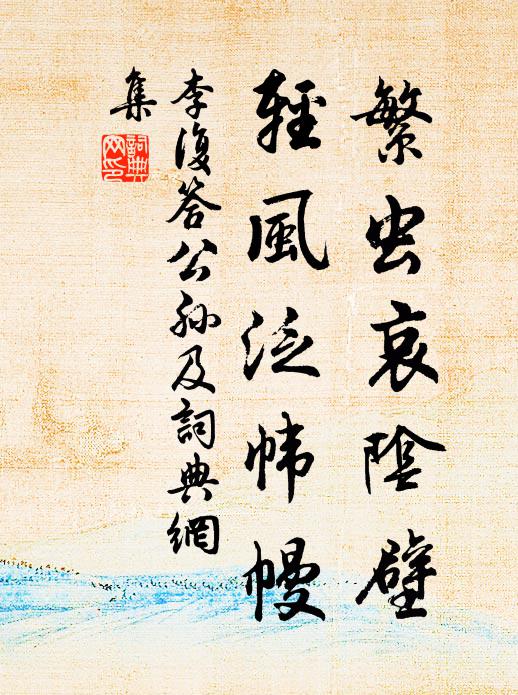 繁虫哀陰壁
輕風泛幃幔
李復答公孫及詞典網
集
詞典網印